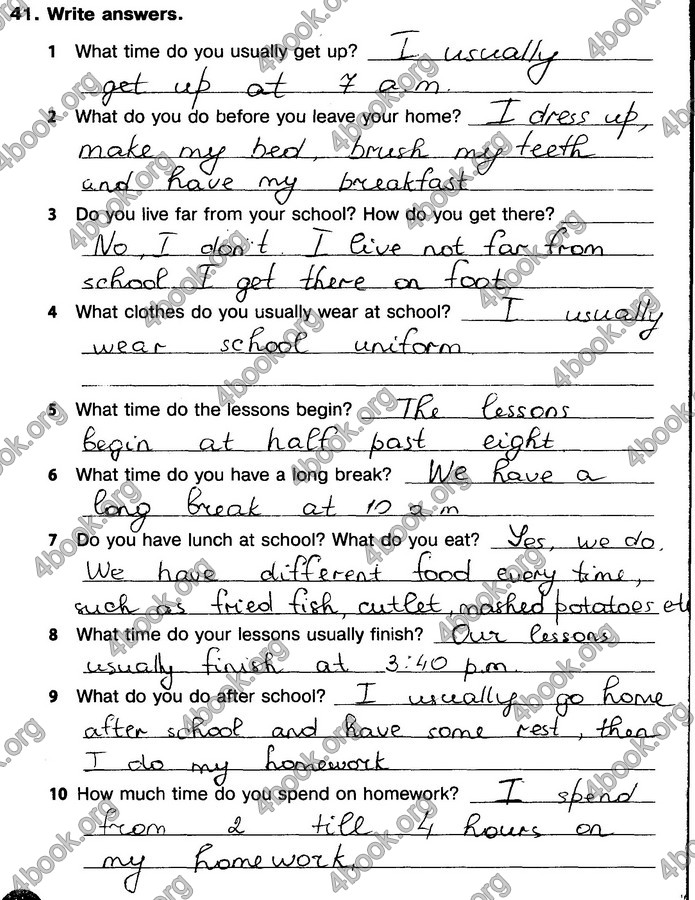 41. Write answers.
1 What time do you usually get up? I usually
get up at 7 a.m.
2 What do you do before you leave your home? I dress up,
make my bed, brush my teeth
and have my breakfast
3 Do you live far from your school? How do you get there?
No, I don't. I live not far from
school. I get there on foot
4 What clothes do you usually wear at school? I usually
wear school uniform
5 What time do the lessons begin? The lessons
begin at half past eight
6 What time do you have a long break? We have a
long break at 10 a.m
7 Do you have lunch at school? What do you eat? Yes, we do.
We have different food every time,
such as fried fish, cutlet, mashed potatoes etc
8 What time do your lessons usually finish? Our lessons
usually finish at 3:40 p.m.
9 What do you do after school? I usually go home
after school and have some rest, then
I do my homework
10 How much time do you spend on homework? I spend
from 2 till 4 hours on
my homework.
4book.org